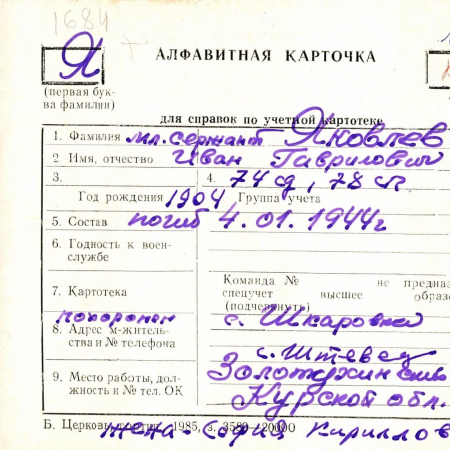 1684
Я
АЛФАВИТНАЯ КАРТОЧКА
(первая бук-
ва фамилии)
для справок по учетной картотеке
1. Фамилия мл. сержант Яковлев
2. Имя, отчество Иван Гаврилович
3. 4. 74 сд, 78 сп
Год рождения 1904 Группа учета
5. Состав погиб 4.01.1944г
6. Годность к воен-
службе
Команда № не предназ
7. Картотека спецучет высшее образо
(подчеркнуть)
похоронен с. Шкаровка
8. Адрес м-житель-
ства и № телефона
с. Штевец
Золотухинский
9. Место работы, дол-
жность и № тел. ОК
Курской обл.
Б. Церковь 1985, з. 3580—20000
жена - София Кириллов